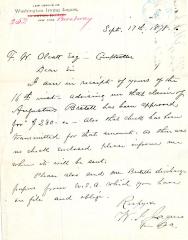 LAW OFFICE OF
Washington Irving
Broadway
Sept. 17th, 1878.
F. W. Olcott Esq - Comptroller
Dear Sir
I am in receipt of yours of the
16th inst. advising me that claim of
Augustus Brettell has been approved
for $280. - Also that check has been
transmitted for that amount. As there was
no check enclosed please inform me
when it will be sent.
Please also send me Brettell discharge
papers from U.S.A. which you have
on file and oblige.